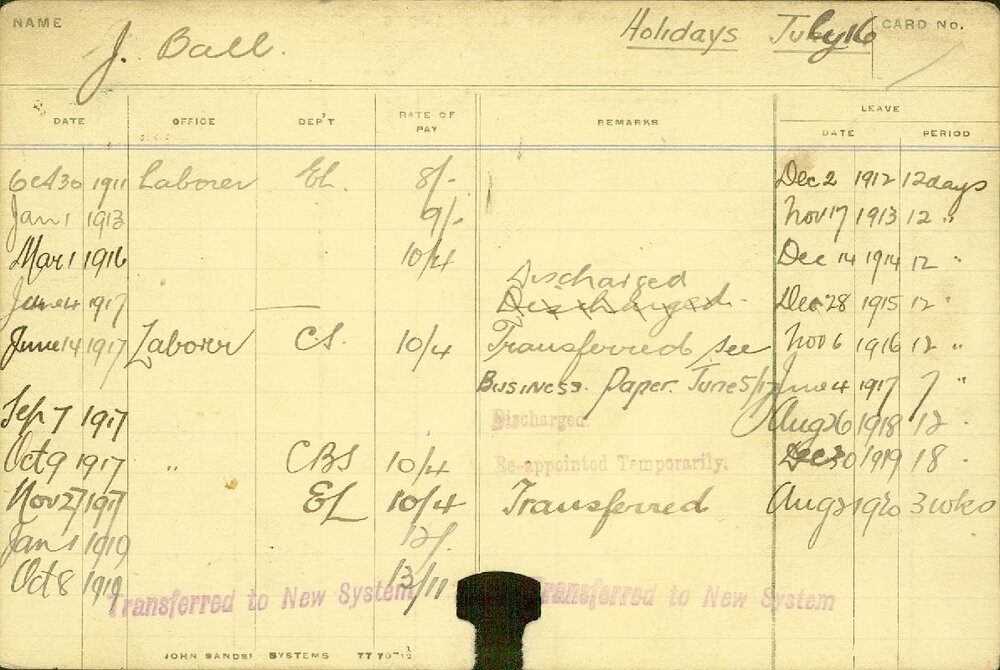 NAME J. Ball. Holidays July 16 CARD No.
DATE OFFICE DEP'T RATE OF PAY REMARKS LEAVE
DATE PERIOD
Oct 30 1911 Laborer EL. 8/- Dec 2 1912 12 days
Jan 1 1913 9/- Nov 17 1913 12 "
Mar 1 1916 10/4 Dec 14 1914 12 "
Discharged
June 4 1917 Discharged Dec 28 1915 12 "
June 14 1917 Laborer CS. 10/4 Transferred see Nov 6 1916 12 "
Business Paper June 5/17 June 4 1917 7 "
Sep 7 1917 Discharged Aug 26 1918 12 "
Oct 9 1917 " CBS 10/4 Re-appointed Temporarily. Dec 30 1919 18 "
Nov 27 1917 EL 10/4 Transferred Aug 21 1920 3 wks
Jan 1 1919 12/.
Oct 8 1919 13/11
Transferred to New System Transferred to New System
JOHN SANDS' SYSTEMS 77 70